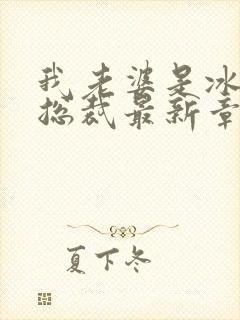 我老婆是冰
总裁最新章
夏下冬